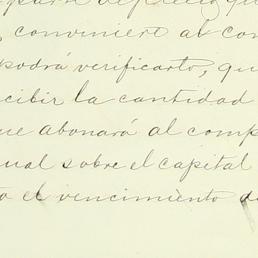 , conviniere al com
podrá verificarto, qu
cibir la cantidad
ue abonará al comp
ual sobre el capital
o el vencimiento de